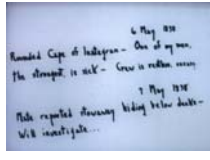 6 May 1838
Rounded Cape of Instagram - One of my men,
the strongest, is sick - Crew is restless,
7 May 1838
Mate reported stowaway hiding below decks -
Will investigate...